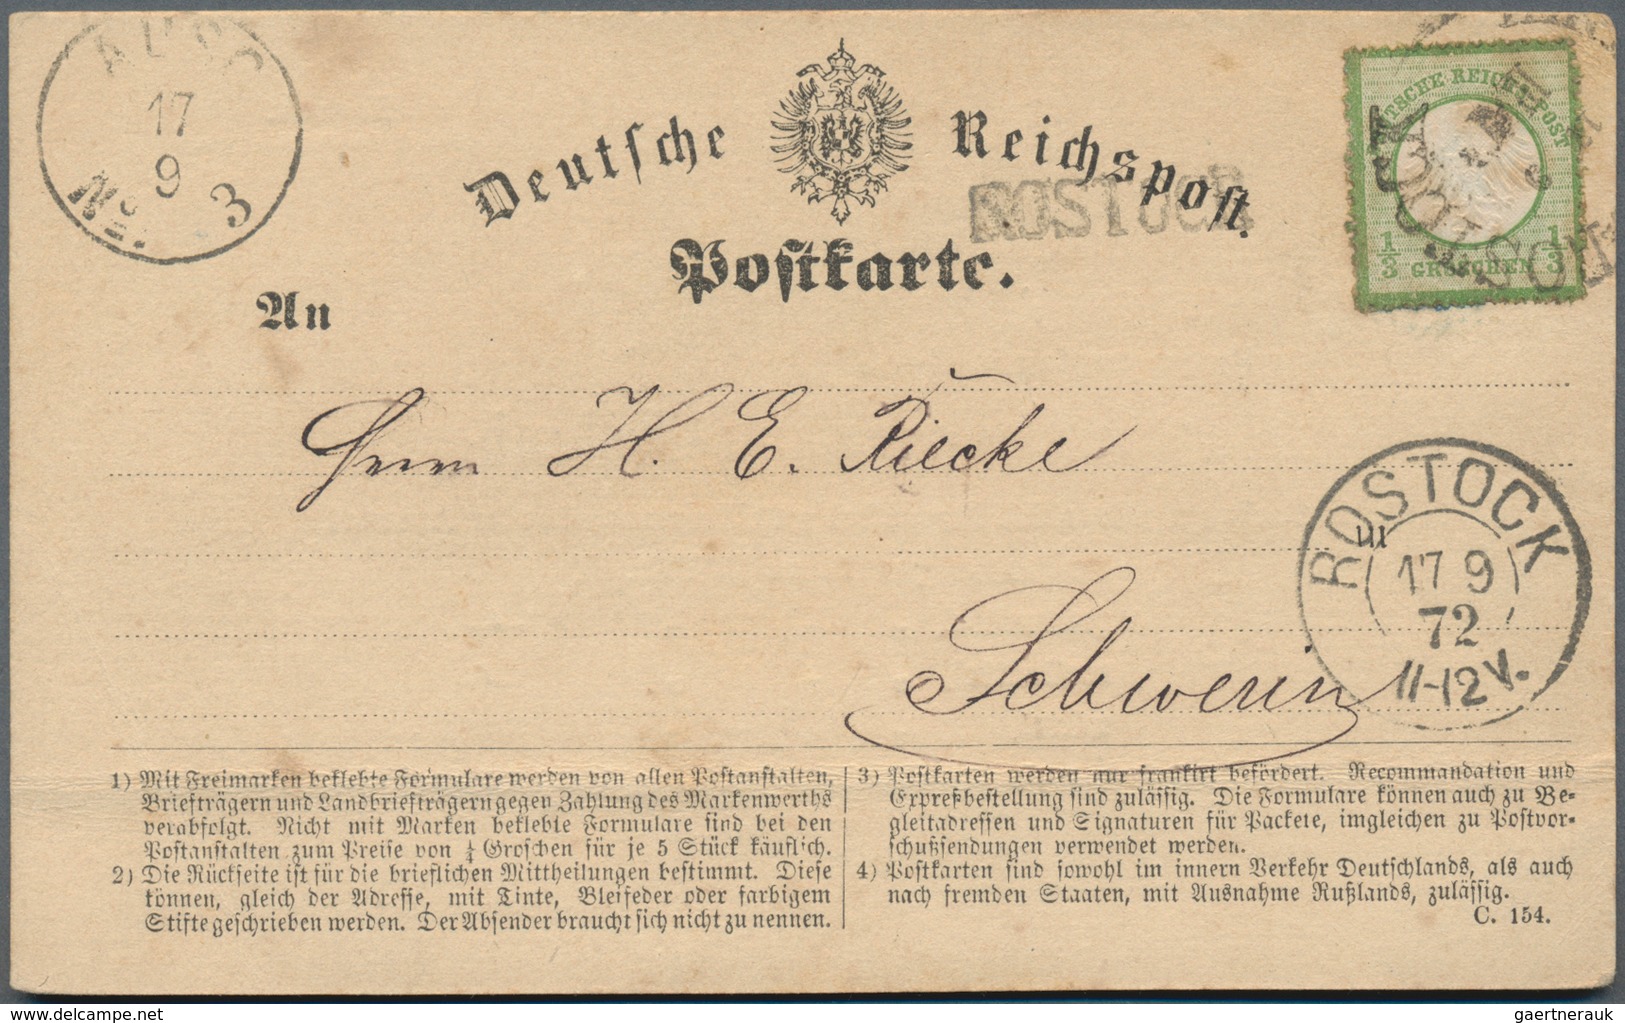 AUSG
17
9
No. 3
Deutsche Reichspost.
ROSTOCK
Postkarte.
DEUTSCHE REICHS-POST
1/3 GROSCHEN 1/3
An
Herrn H. E. Riecke
in
Schwerin
ROSTOCK
17 9
72
11-12 V.
1) Mit Freimarken beklebte Formulare werden von allen Postanstalten,
Briefträgern und Landbriefträgern gegen Zahlung des Markenwerths
verabfolgt. Nicht mit Marken beklebte Formulare sind bei den
Postanstalten zum Preise von ¼ Groschen für je 5 Stück käuflich.
2) Die Rückseite ist für die brieflichen Mittheilungen bestimmt. Diese
können, gleich der Adresse, mit Tinte, Bleifeder oder farbigem
Stifte geschrieben werden. Der Absender braucht sich nicht zu nennen.
3) Postkarten werden nur frankirt befördert. Recommandation und
Expreßbestellung sind zulässig. Die Formulare können auch zu Be-
gleitadressen und Signaturen für Packete, imgleichen zu Postvor-
schußsendungen verwendet werden.
4) Postkarten sind sowohl im innern Verkehr Deutschlands, als auch
nach fremden Staaten, mit Ausnahme Rußlands, zulässig.
C. 154.
delcampe.net
gaertnerauk